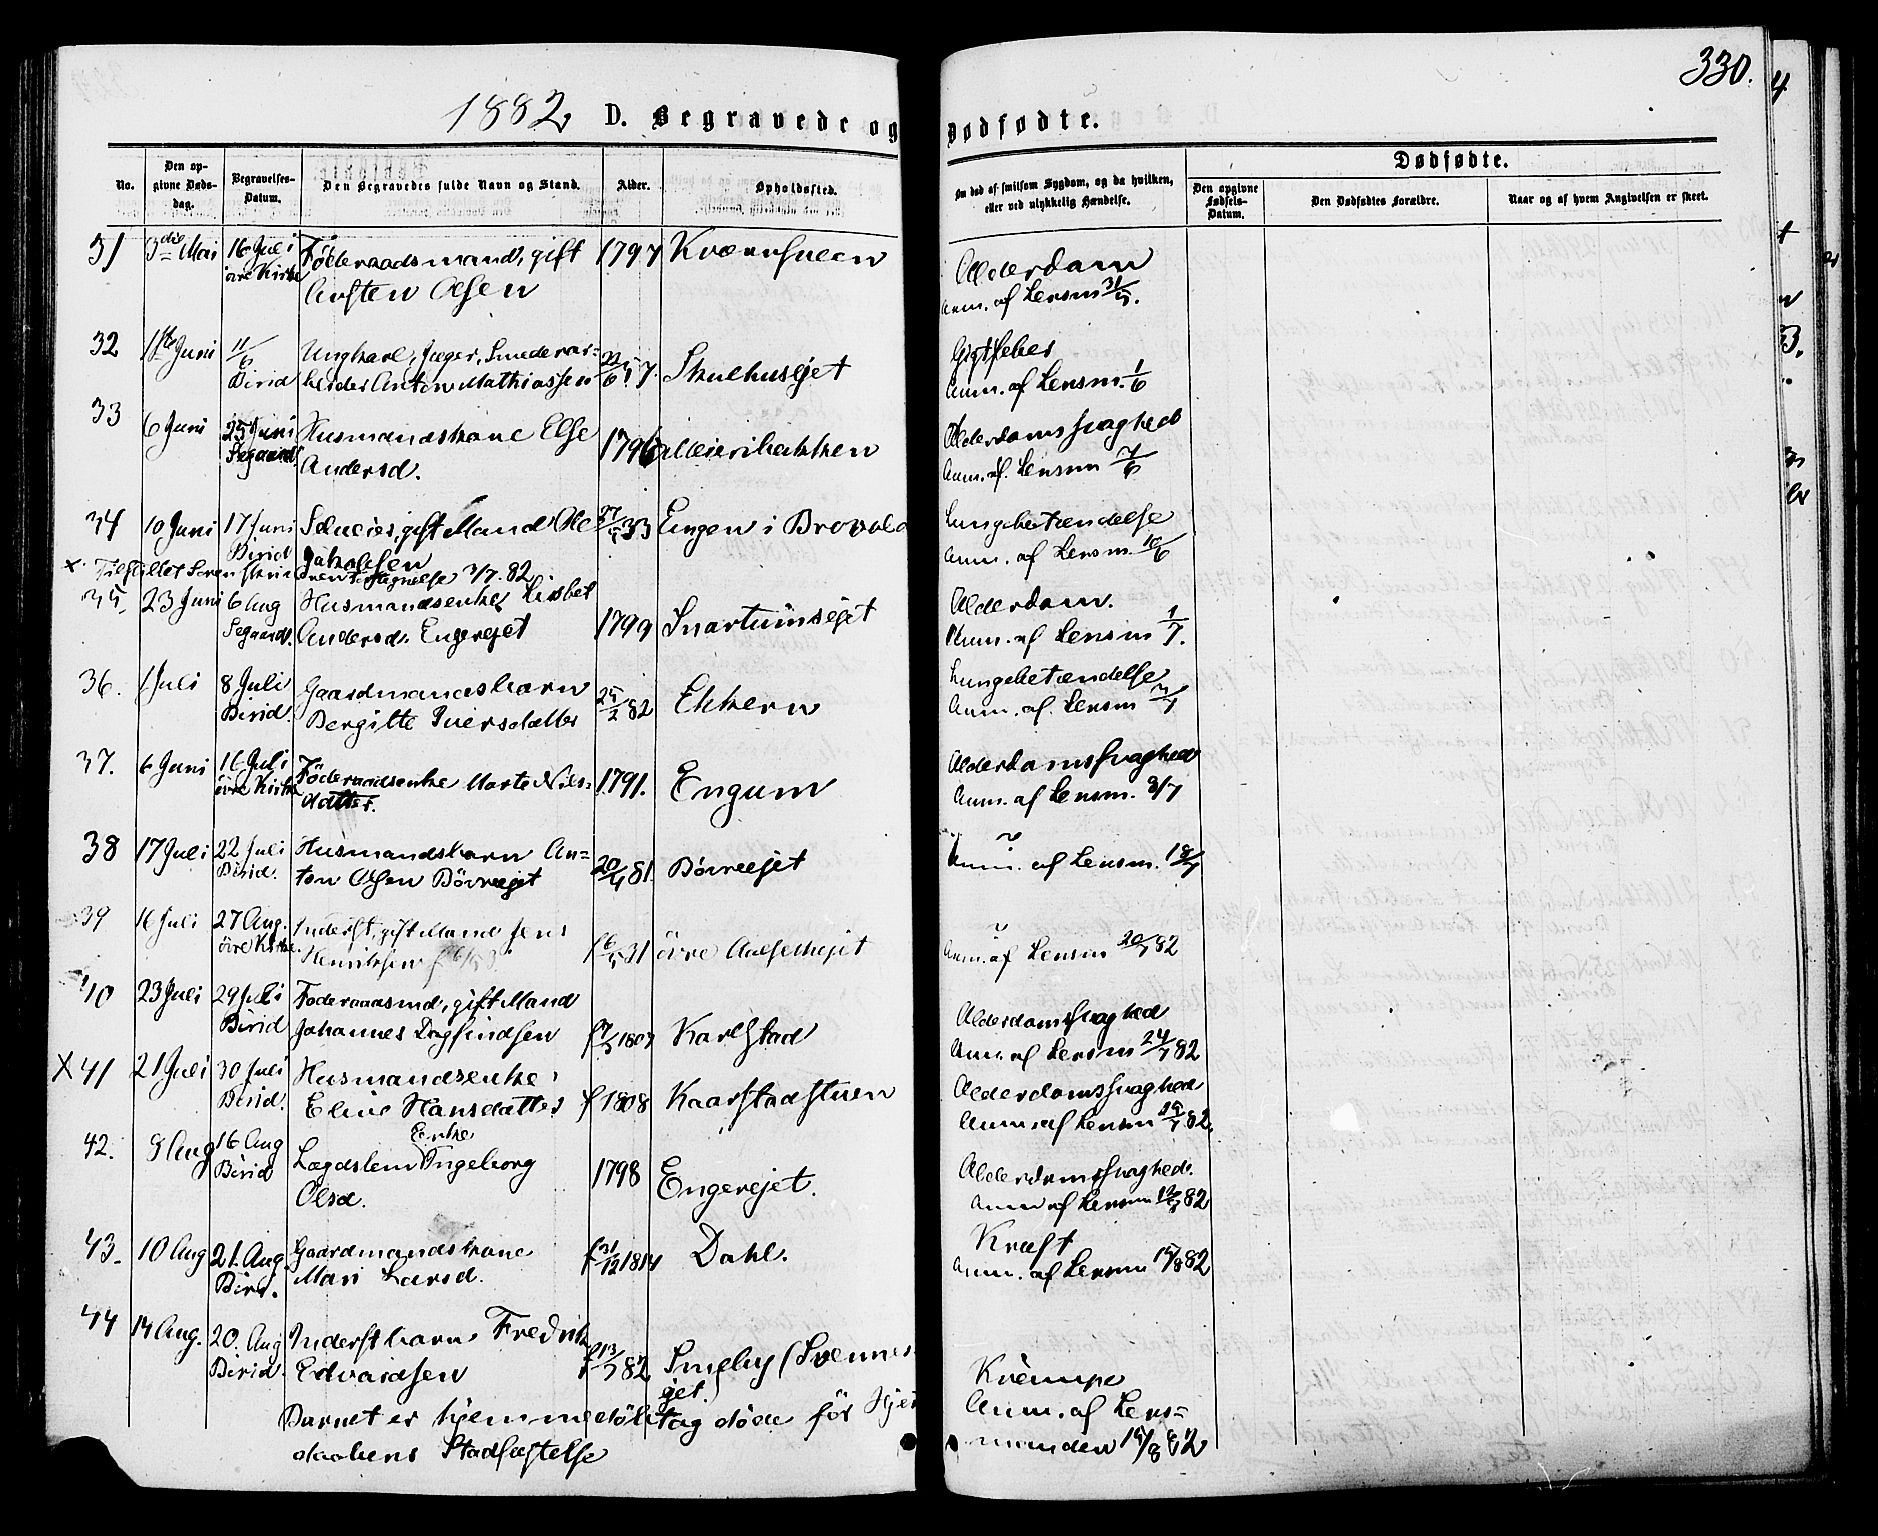 330.
1882 D. Begravede og Dødfødte.
No. Den opgivne Dødsdag. Begravelses-Datum. Den Begravedes fulde Navn og Stand. Alder. Opholdssted. Om død af smitsom Sygdom, og da hvilken, eller ved ulykkelig Hændelse. Dødfødte.
Den opgivne Fødsels-Datum. Den Dødfødtes Forældre. Naar og af hvem Angivelsen er skeet.
31 3die Mai 16 Juli Föderaadsmand, gift 1797 Alderdom
övre Kirke Olsen Anm. af Lensm 31/5.
32 1ste Juni 11/6 Ungkarl, Jæger, Smedear= 57 Skulhusejet Gigtfeber
Birid beider Anton Mathiassen Anm. af Lensm. 1/6
33 6 Juni 25 Juni Husmandskone Else 1796 Meieribakken Alderdomssvaghed
Segaard Andersd. Anm. af Lensm 7/6
34 10 Juni 17 Juni gift Mand Ole 33 Engen i Brovold Lungebetændelse
Birid Jakobsen Anm. af Lensm. 10/6
x. Tilstillet Sorenskriveren 3/7. 82
35, 23 Juni 6 Aug Husmandsenke Lisbet 1799 Snartumsejet Alderdom.
Segaard. Andersd. Engerejet Anm. af Lensm 1/7.
36. 1 Juli 8 Juli Gaardmandsbarn 25/2 82 Ekkern Lungebetændelse
Birid. Bergitte Iversdatter Anm. af Lensm
37. 6 Juni 16 Juli Föderaadsenke Marte Nils= 1791. Engum Alderdomssvaghed
övre Kirke datter. Anm. af Lensm. 3/7
38 17 Juli 22 Juli Husmandsbarn An= 81. Bövreejet
Birid. ton Olsen Bövreejet Anm. af Lensm. 18/7
39 16 Juli 27 Aug. Inderst, gift Mand Jens f 6/5 31 övre
övre Kirke. Henriksen Anm. af Lensm 20/7 82
40 23 Juli 29 Juli Föderaadsmd, gift Mand Karlstad Alderdomssvaghed
Birid Johannes Dagfindsen Anm. af Lensm 24/7 82
X 41 21 Juli 30 Juli Husmandsenke f 1808 Kaarstadstuen Alderdomssvaghed
Birid. Eline Hansdatter Anm. af Lensm 82.
Enke
42. 9 Aug 16 Aug Lægdslem Ingeborg 1798 Engerejet. Alderdomssvaghed.
Birid Olsd. Anm af Lensm 82
43. 10 Aug 21. Aug. Gaardmandskone f 31/12 1814 Dahl. Kræft
Birid. Mari Larsd. Anm. af Lensm 15/8 82
44 14 Aug. 20. Aug Inderstbarn Fredrik f 13/7 82 Smeby (Svennes= Krampe
Birid. Edvardsen ejet.) Anm. af Lens=
Barnet er hjemmedöbt og döde för Hjem= manden 15/8 82
daabens Stadfæstelse